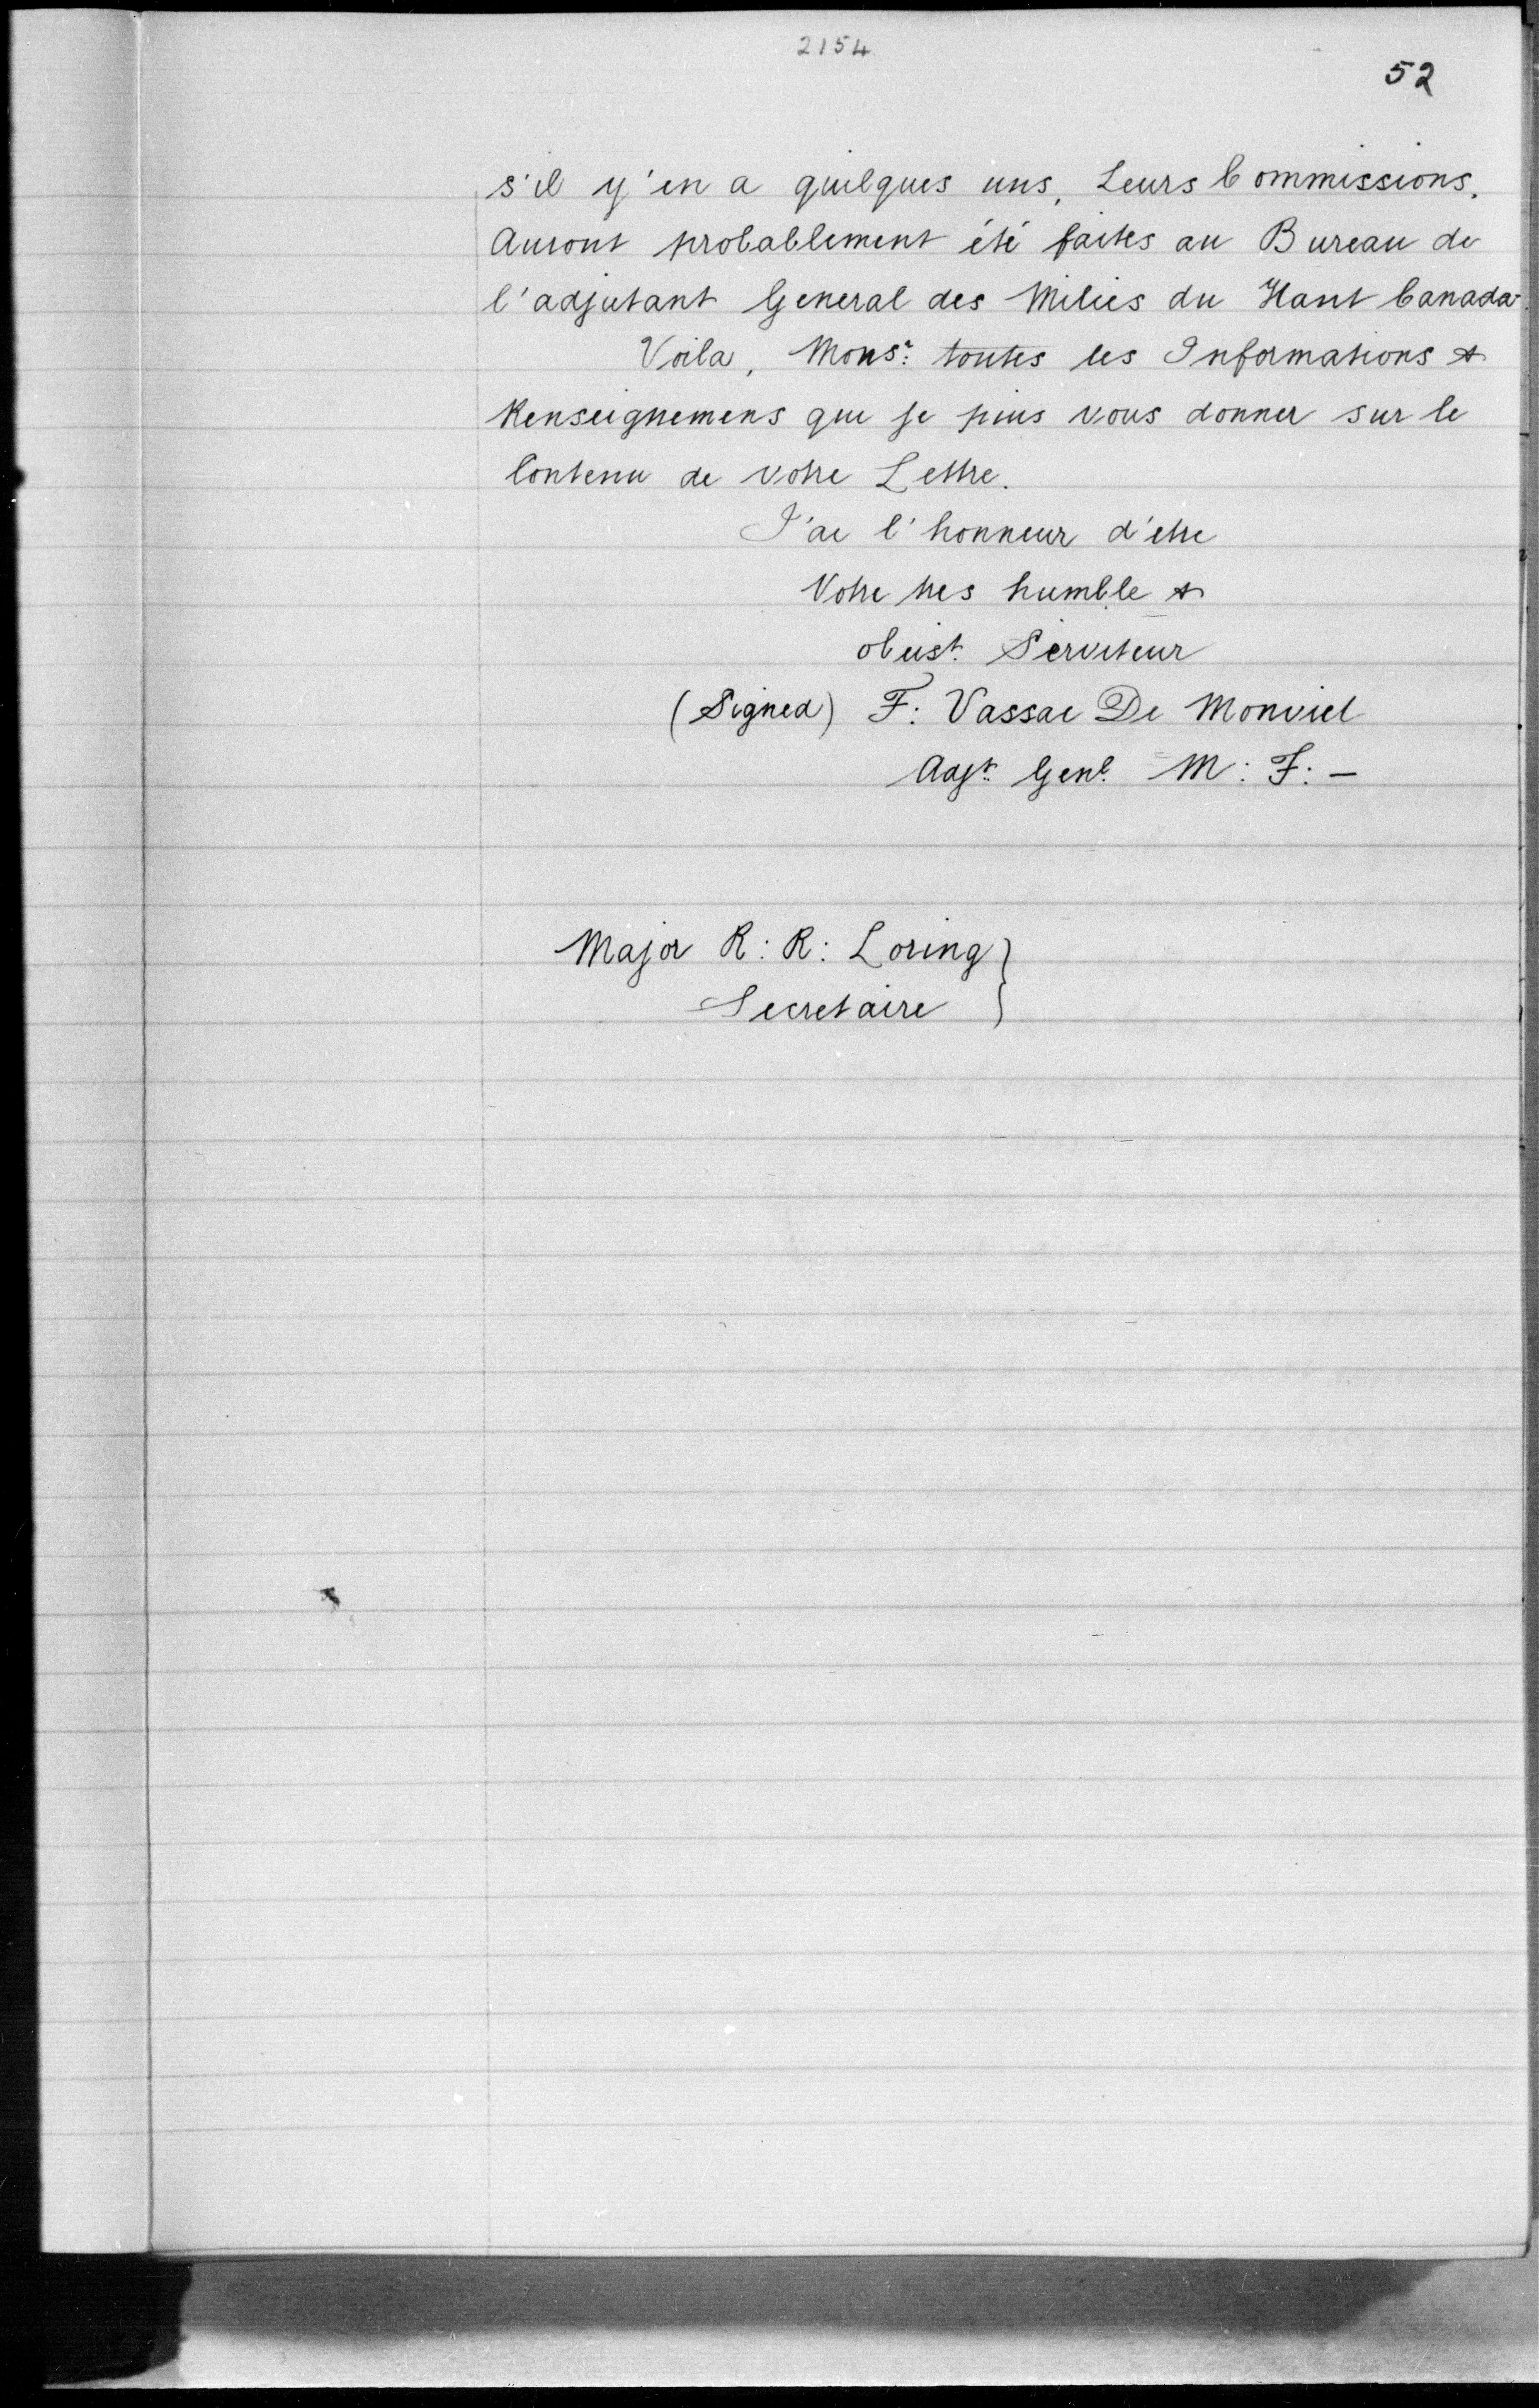 2154
52
s'il y'en a quelques uns, Leurs Commissions.
Auront probablement été faites au Bureau de
l'adjutant General des Milies du Haut Canada
Voila, Monsr: toutes les Informations &
Renseignemens que je puis vous donner sur le
Contenu de votre Lettre.
J'ai l'honneur d'etre
Votre tres humble &
obeist. Serviteur
(Signed) F: Vassal De Monviel
Adjt: Genl. M: F: –
Major R: R: Loring }
Secretaire }